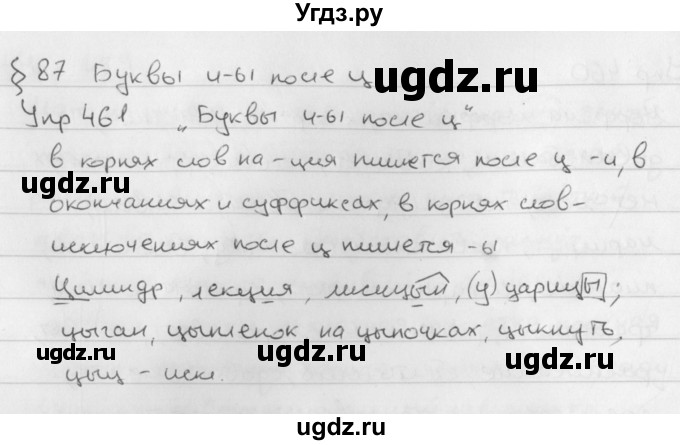 Угдз.ру
§ 87 Буквы и-ы после ц
Упр 461 „Буквы и-ы после ц"
в корнях слов на -ция пишется после ц -и, в
окончаниях и суффиксах, в корнях слов-
исключениях после ц пишется -ы
Цилиндр, лекция, лисицый, (у) цариц ы;
цыган, цыпленок на цыпочках, цыкнуть,
цыц - искл.
ugdz.ru
ugdz.ru
ugdz.ru
ugdz.ru
ugdz.ru
ugdz.ru
ugdz.ru
ugdz.ru
ugdz.ru